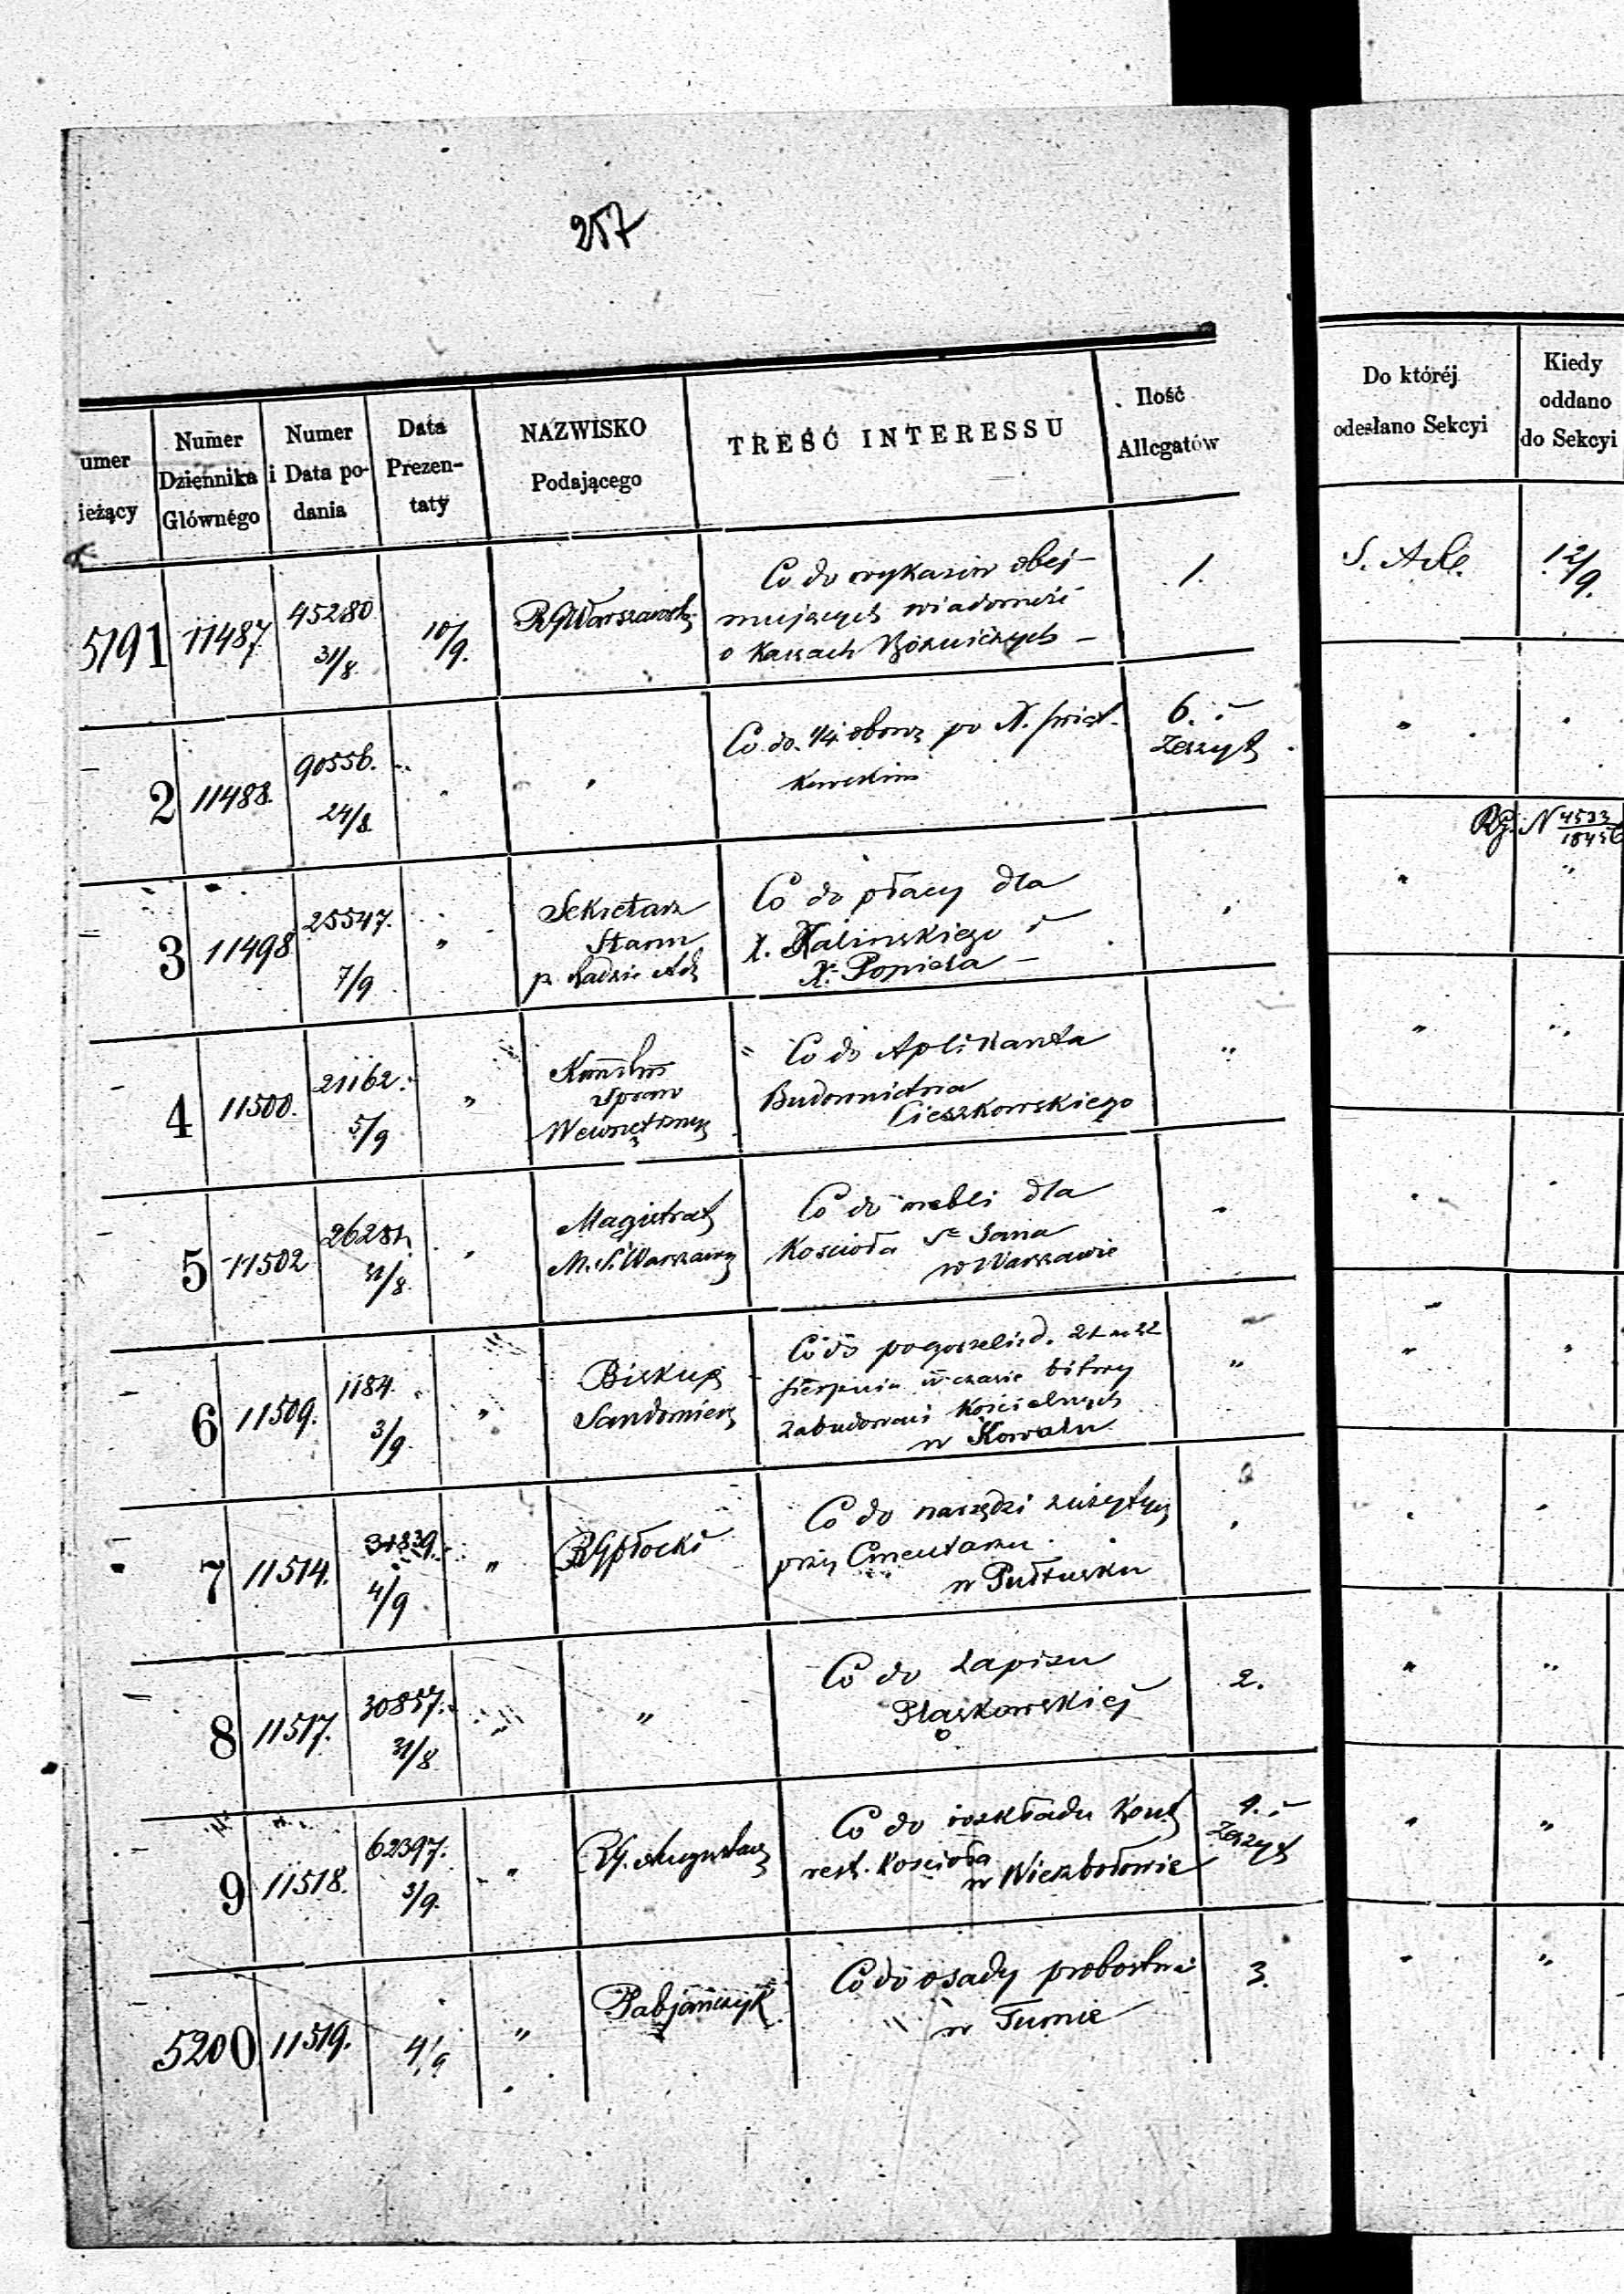 257
umer
ieżący
Numer
Dziennika
Głównégo
Numer
i Data po-
dania
Data
Prezen-
taty
NAZWISKO
Podającego
TREŚĆ INTERESSU
Ilość
Allegatów
Do któréj
odesłano Sekcyi
Kiedy
oddano
do Sekcyi
5191
11487
45280
31/8.
10/9.
RGWarszawski
Co do wykazów obej-
mujących wiadomość
o Kassach
1.
12/9.
2
11488.
90556.
24/8.
"
"
Co do 1/4 po N.
6.
Zeszyt
"
"
RG. N 4533
3
11498
25547.
7/9
"
Sekretarz
Stanu
p. Radzie Adm
Co do płacy dla
X. Kalinskiego i
X. Popiela —
"
"
"
4
11500.
21162.
5/9
"
Spraw
Wewnętrznych
Co do Aplikanta
Budownictwa
Cieszkowskiego
"
"
"
5
11502
31/8.
"
Magistrat
M. S. Warszawy
Co do mebli dla
Koscioła Sgo Jana
w Warszawie
"
"
"
6
11509.
1184.
3/9
"
Biskup
Sandomiers
Co do pogorzeli d. 21 na 22
sierpnia w czasie bitwy
zabudowań Kościelnych
w Kowalu
"
"
"
7
11514.
31839.
4/9
"
RGPłocki
Co do narzędzi zużytych
przy Cmentarzu
w Pułtusku
"
"
"
8
11517.
30857.
31/8
"
"
Co do zapisu
Płaskowskiej
2.
"
"
9
11518.
62397.
3/9.
"
RG. Augustow
Co do rozkładu Kosz
rest. Kościoła
w Wierzbołowie
Zeszyt
"
"
5200
11519.
4/9
"
Pabjańczyk
Co do osady probostwa
w Tumie
3.
"
"